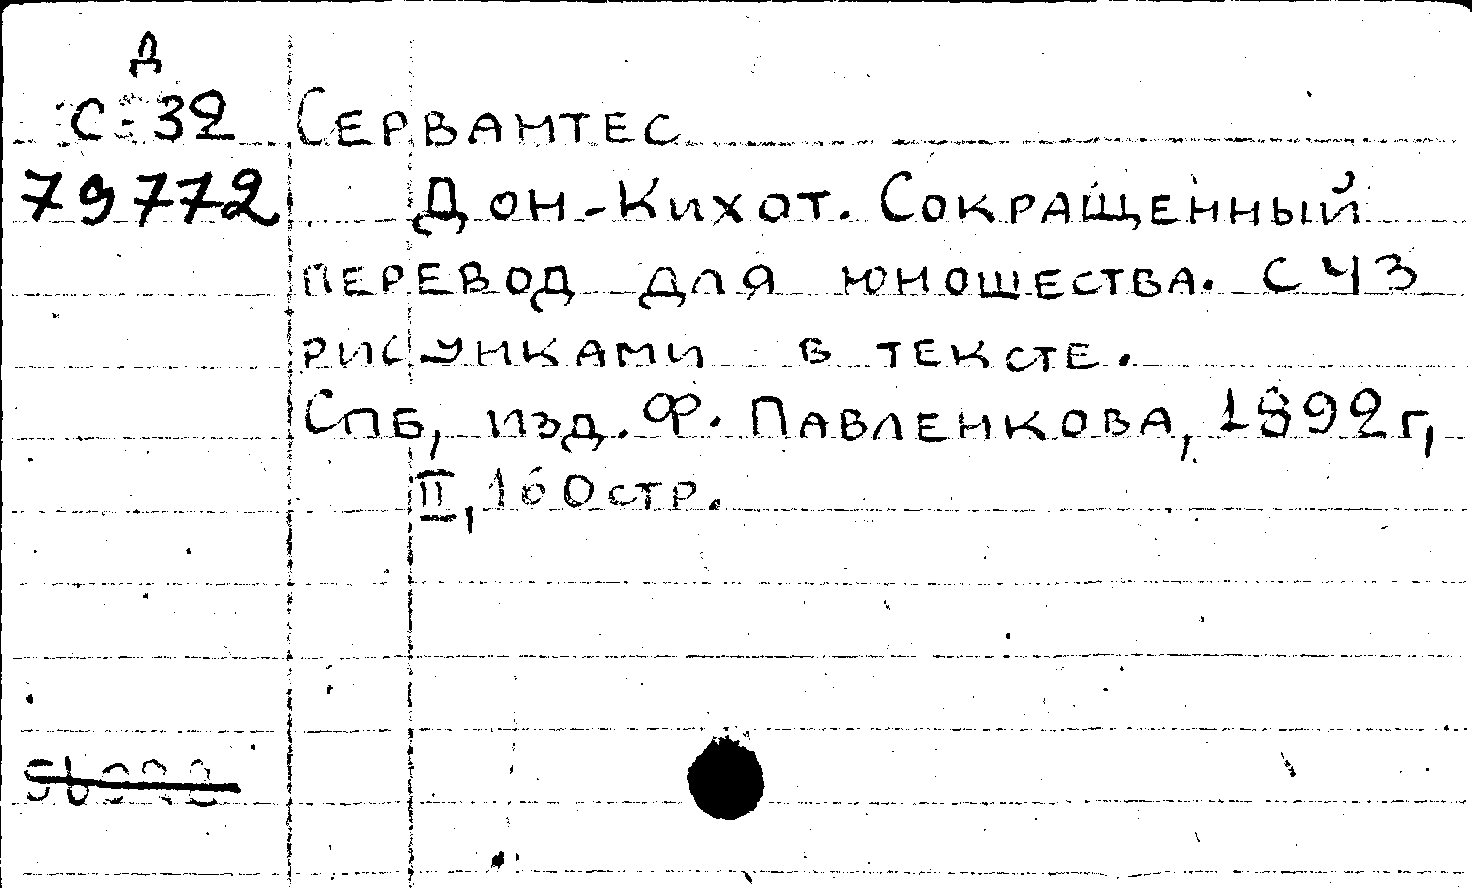 Д
С-32 Сервантес
79772 Дон-Кихот. Сокращенный
перевод для юношества. С 43
рисунками в тексте.
Спб, изд. Ф. Павленкова, 1892 г,
II, 160 стр.